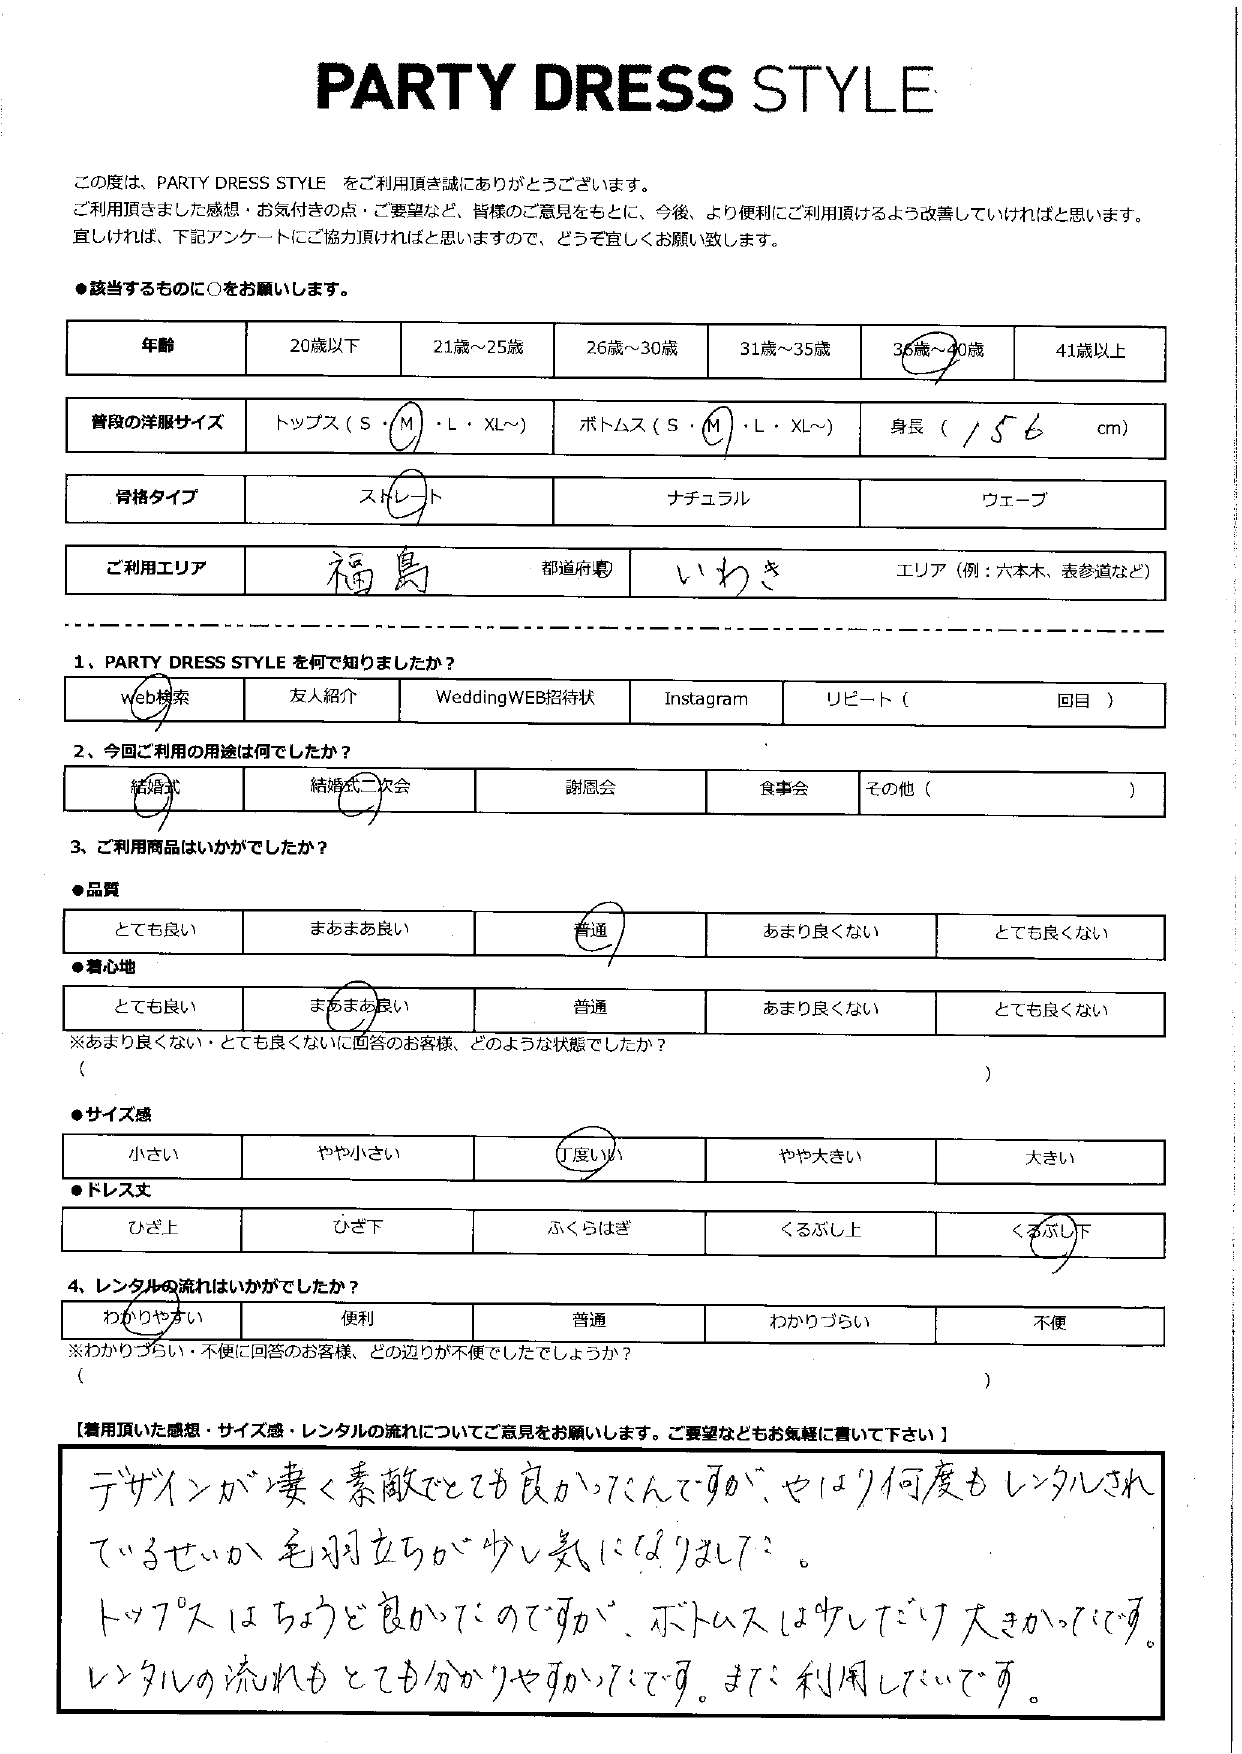 PARTY DRESS STYLE
この度は、PARTY DRESS STYLE をご利用頂き誠にありがとうございます。
ご利用頂きました感想・お気付きの点・ご要望など、皆様のご意見をもとに、今後、より便利にご利用頂けるよう改善していければと思います。
宜しければ、下記アンケートにご協力頂ければと思いますので、どうぞ宜しくお願い致します。
●該当するものに○をお願いします。
年齢 20歳以下 21歳～25歳 26歳～30歳 31歳～35歳 36歳～40歳 41歳以上
普段の洋服サイズ トップス ( S ・ M ・ L ・ XL～) ボトムス ( S ・ M ・ L ・ XL～) 身長 ( 156 cm)
骨格タイプ ストレート ナチュラル ウェーブ
ご利用エリア 福島 都道府県 いわき エリア（例：六本木、表参道など）
1、PARTY DRESS STYLE を何で知りましたか？
web検索 友人紹介 WeddingWEB招待状 Instagram リピート（ 回目 ）
2、今回ご利用の用途は何でしたか？
結婚式 結婚式二次会 謝恩会 食事会 その他（ ）
3、ご利用商品はいかがでしたか？
●品質
とても良い まあまあ良い 普通 あまり良くない とても良くない
●着心地
とても良い まあまあ良い 普通 あまり良くない とても良くない
※あまり良くない・とても良くないに回答のお客様、どのような状態でしたか？
（ ）
●サイズ感
小さい やや小さい 丁度いい やや大きい 大きい
●ドレス丈
ひざ上 ひざ下 ふくらはぎ くるぶし上 くるぶし下
4、レンタルの流れはいかがでしたか？
わかりやすい 便利 普通 わかりづらい 不便
※わかりづらい・不便に回答のお客様、どの辺りが不便でしたでしょうか？
（ ）
【着用頂いた感想・サイズ感・レンタルの流れについてご意見をお願いします。ご要望などもお気軽に書いて下さい 】
デザインが凄く素敵でとても良かったんですが、やはり何度もレンタルされ
ているせいか毛羽立ちが少し気になりました。
トップスはちょうど良かったのですが、ボトムスは少しだけ大きかったです。
レンタルの流れもとても分かりやすかったです。また利用したいです。